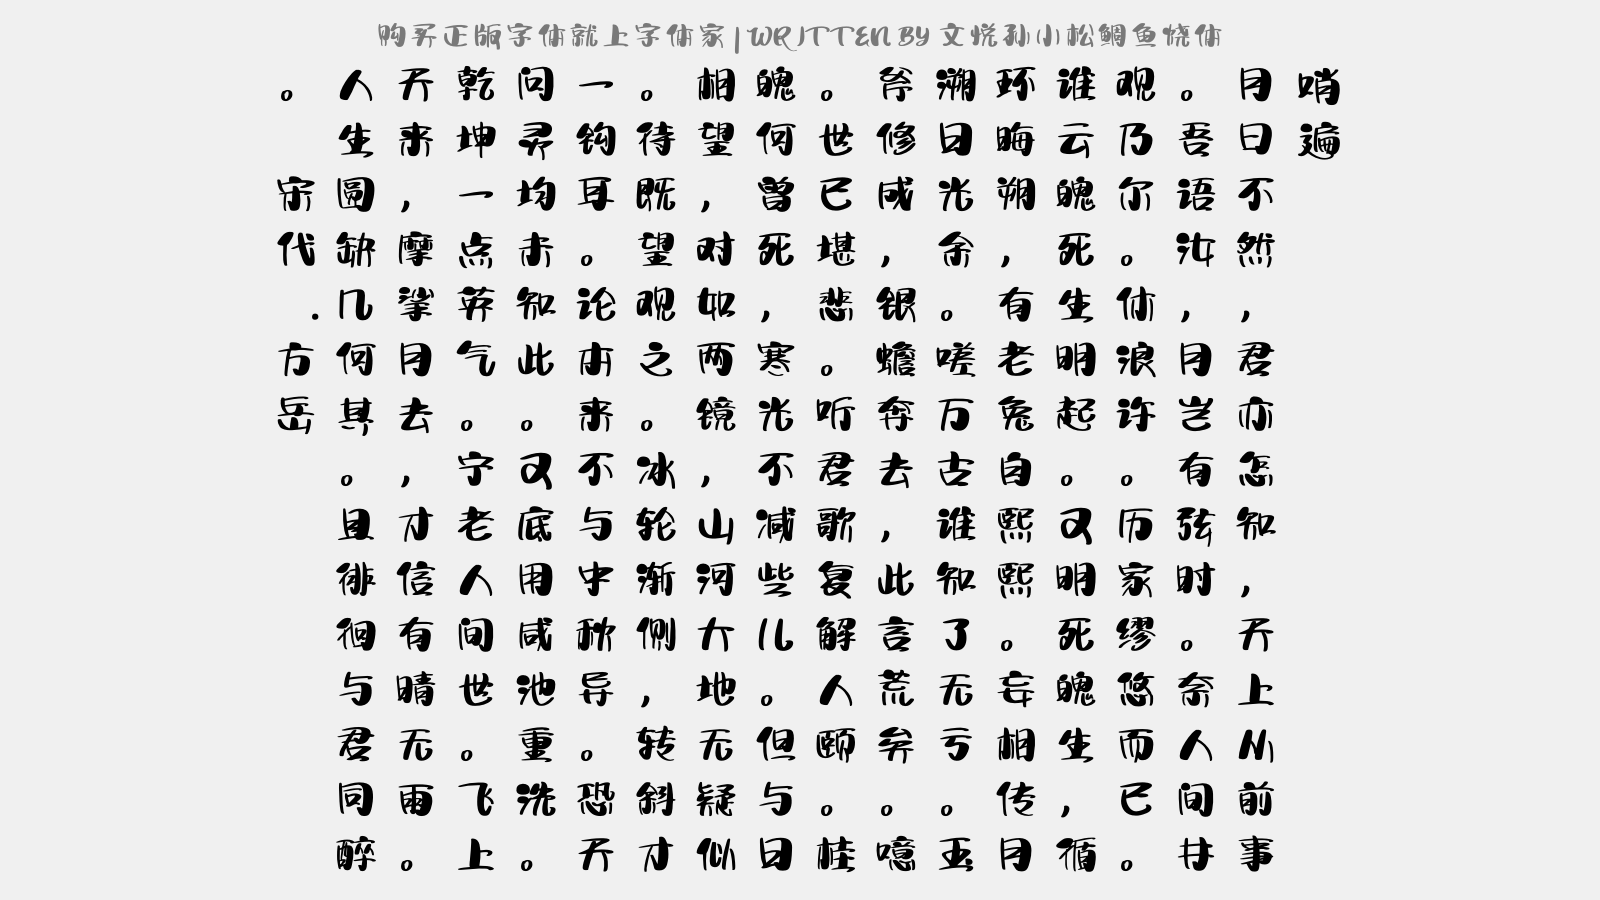 购买正版字体就上字体家 | WRITTEN BY 文悦孙小松鲷鱼烧体
哨遍
月曰不然，君亦怎知，天上从前事
。吾语汝，月岂有弦时。奈人间井
观乃尔。体浪许。历家缪悠而已。
谁云魄死生明起。又明死魄生，循
环晦朔，有老兔自熙熙。妄相传月
溯日光余。嗟万古谁知了无亏。玉
斧修成，银蟾奔去，此言荒矣。噫
。世已堪悲。听君歌复解人颐。桂
魄何曾死，寒光不减些儿。但与日
相望，对如两镜，山河大地无疑似
。待既望观之。冰轮渐侧，转斜才
一钩耳。论本来不与中秋异。恐天
问灵均未知此。又底用咸池重洗。
乾坤一点英气。宁老人间世。飞上
天来，摩挲月去，才信有晴无雨。
人生圆缺几何其。且徘徊与君同醉
。
宋代.方岳